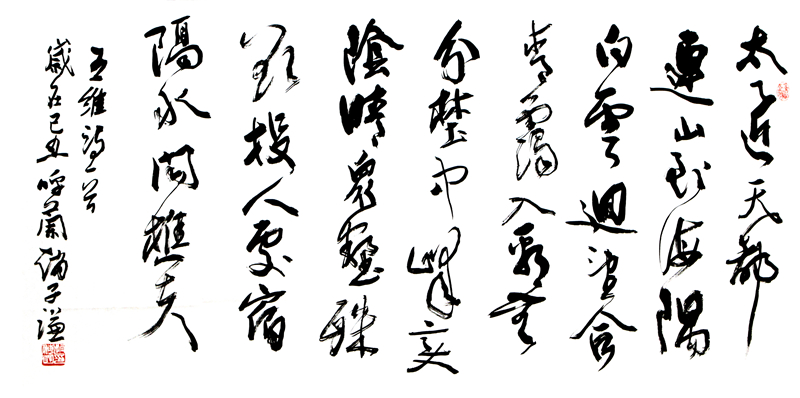 太乙近天都
連山到海隅
白雲迴望合
青靄入看無
分埜中峰变
陰晴衆壑殊
欲投人處宿
隔水問樵夫
王維詩一首
歲在己丑呼蘭子謙